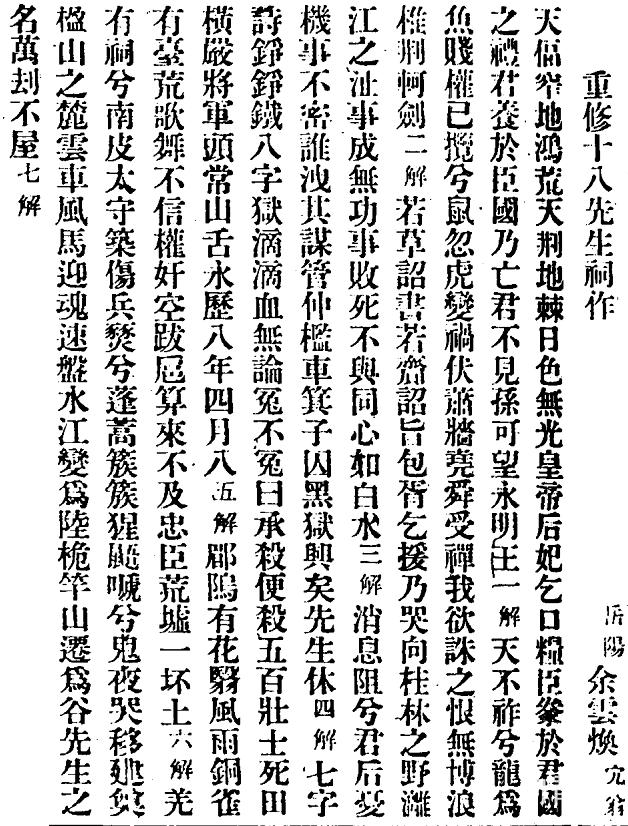 重修十八先生祠作
岳陽 余雲煥
天偪窄地鴻荒天荆地棘日色無光皇帝后妃乞口糧臣豢於君國
之禮君養於臣國乃亡君不見孫可望永明王一解天不祚兮龍爲
魚賤權已攬兮鼠忽虎變禍伏蕭牆堯舜受禪我欲誅之恨無博浪
椎荆軻劍二解若草詔書若齎詔旨包胥乞援乃哭向桂林之野灕
江之沚事成無功事敗死不與同心如白水三解消息阻兮君后憂
機事不密誰洩其謀管仲檻車箕子囚黑獄興矣先生休四解七字
詩錚錚鐵八字獄滴滴血無論寃不寃曰承殺便殺五百壯士死田
橫嚴將軍頭常山舌永歷八年四月八五解郿隝有花翳風雨銅雀
有臺荒歌舞不信權奸空跋扈算來不及忠臣荒墟一坏土六解羌
有祠兮南皮太守築傷兵燹兮蓬蒿簇簇猩鼯嘷兮鬼夜哭移建奐
楹山之麓雲車風馬迎魂速盤水江變爲陸桅竿山遷爲谷先生之
名萬刦不屋七解